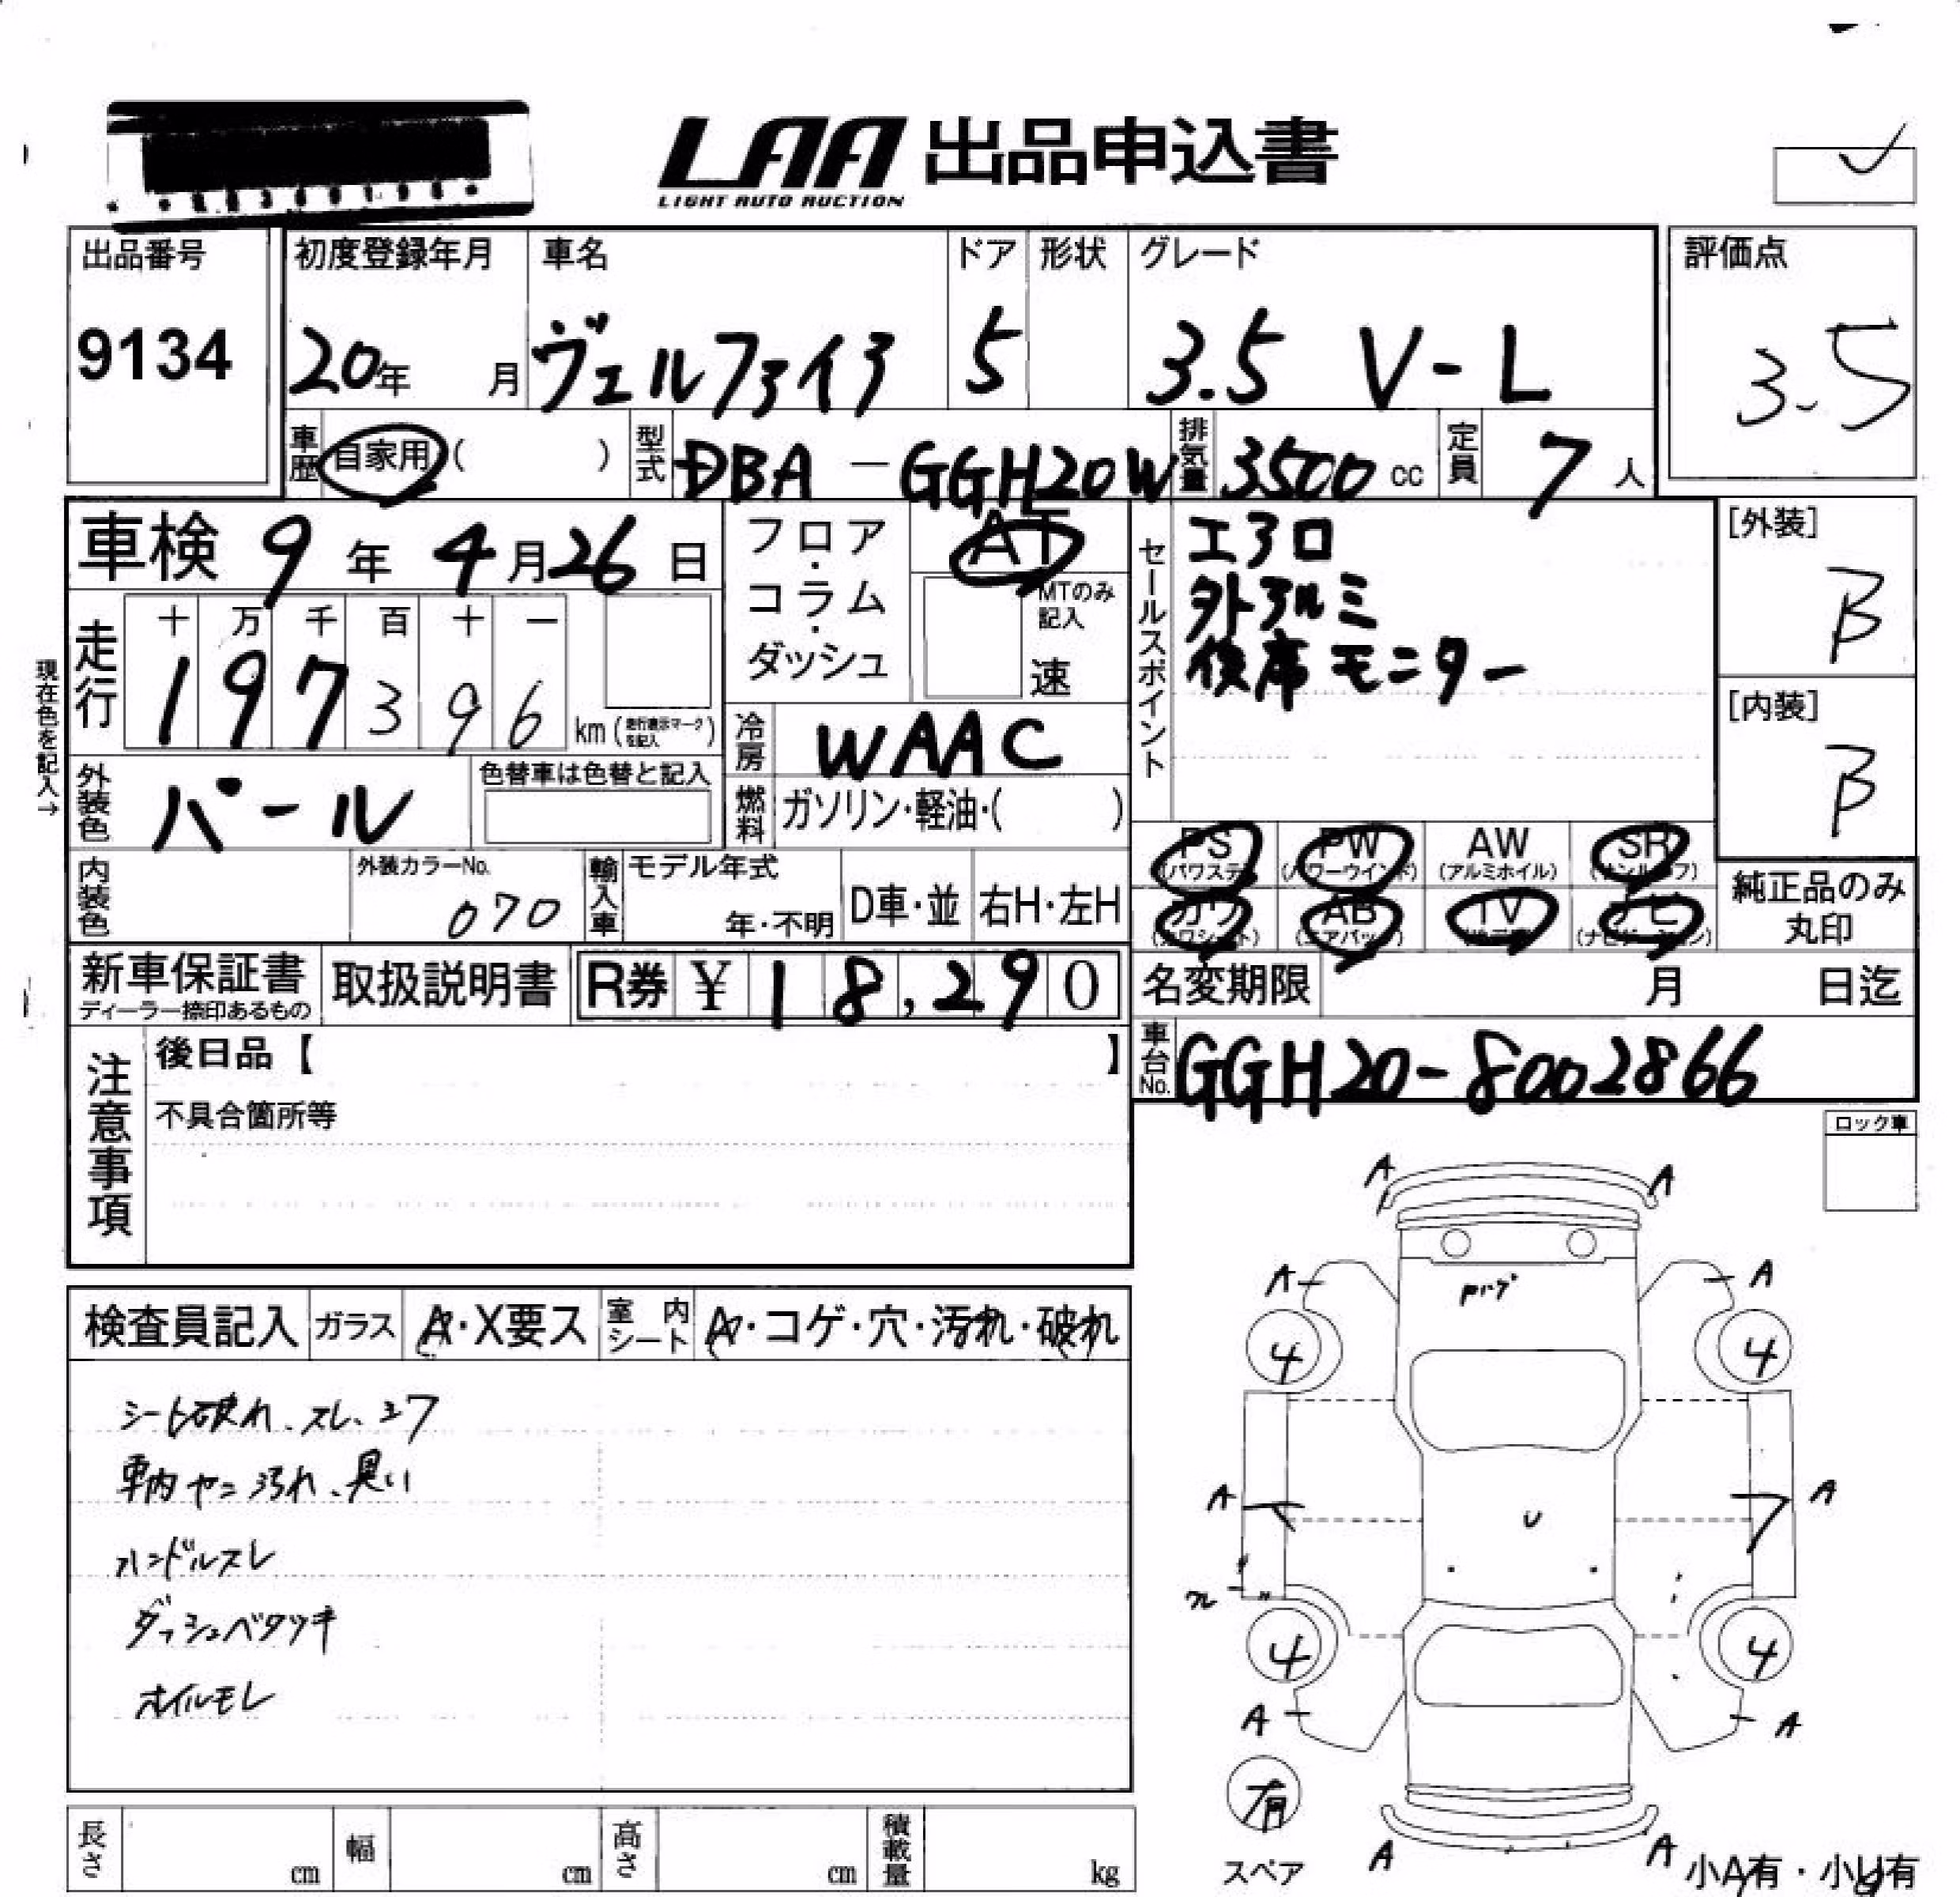 LAA 出品申込書
LIGHT AUTO AUCTION
出品番号
9134
初度登録年月
20年 月
車名
ヴェルファイア
ドア
5
形状
グレード
3.5 V-L
評価点
3.5
車歴
自家用 ( )
型式
DBA - GGH20W
排気量
3500 cc
定員
7 人
車検 9年 4月 26日
フロア・コラム・ダッシュ
AT
MTのみ記入
速
セールスポイント
エアロ
外アルミ
後席モニター
[外装]
B
[内装]
B
現在色を記入→
走行
十 万 千 百 十 一
1 9 7 3 9 6
km (走行表示マークを記入)
冷房
WAAC
外装色
パール
色替車は色替と記入
燃料
ガソリン・軽油・( )
PS (パワステ)
PW (パワーウインド)
AW (アルミホイル)
SR (サンルーフ)
カワ (カワシート)
AB (エアバッグ)
TV
ナビ (ナビゲーション)
純正品のみ丸印
内装色
外装カラーNo.
070
輸入車
モデル年式
年・不明
D車・並
右H・左H
新車保証書
ディーラー捺印あるもの
取扱説明書
R券 ¥ 18,290
名変期限 月 日迄
車台No.
GGH20-8002866
注意事項
後日品【 】
不具合箇所等
ロック車
検査員記入
ガラス
A・X要ス
室内シート
A・コゲ・穴・汚れ・破れ
シート破れ、スレ、コゲ
車内ヤニ汚れ、臭い
ハンドルスレ
ダッシュベタツキ
オイルモレ
A A
A A
4 4
A A
U
4 4
A A
有
スペア
A A
小A有・小U有
長さ cm
幅 cm
高さ cm
積載量 kg